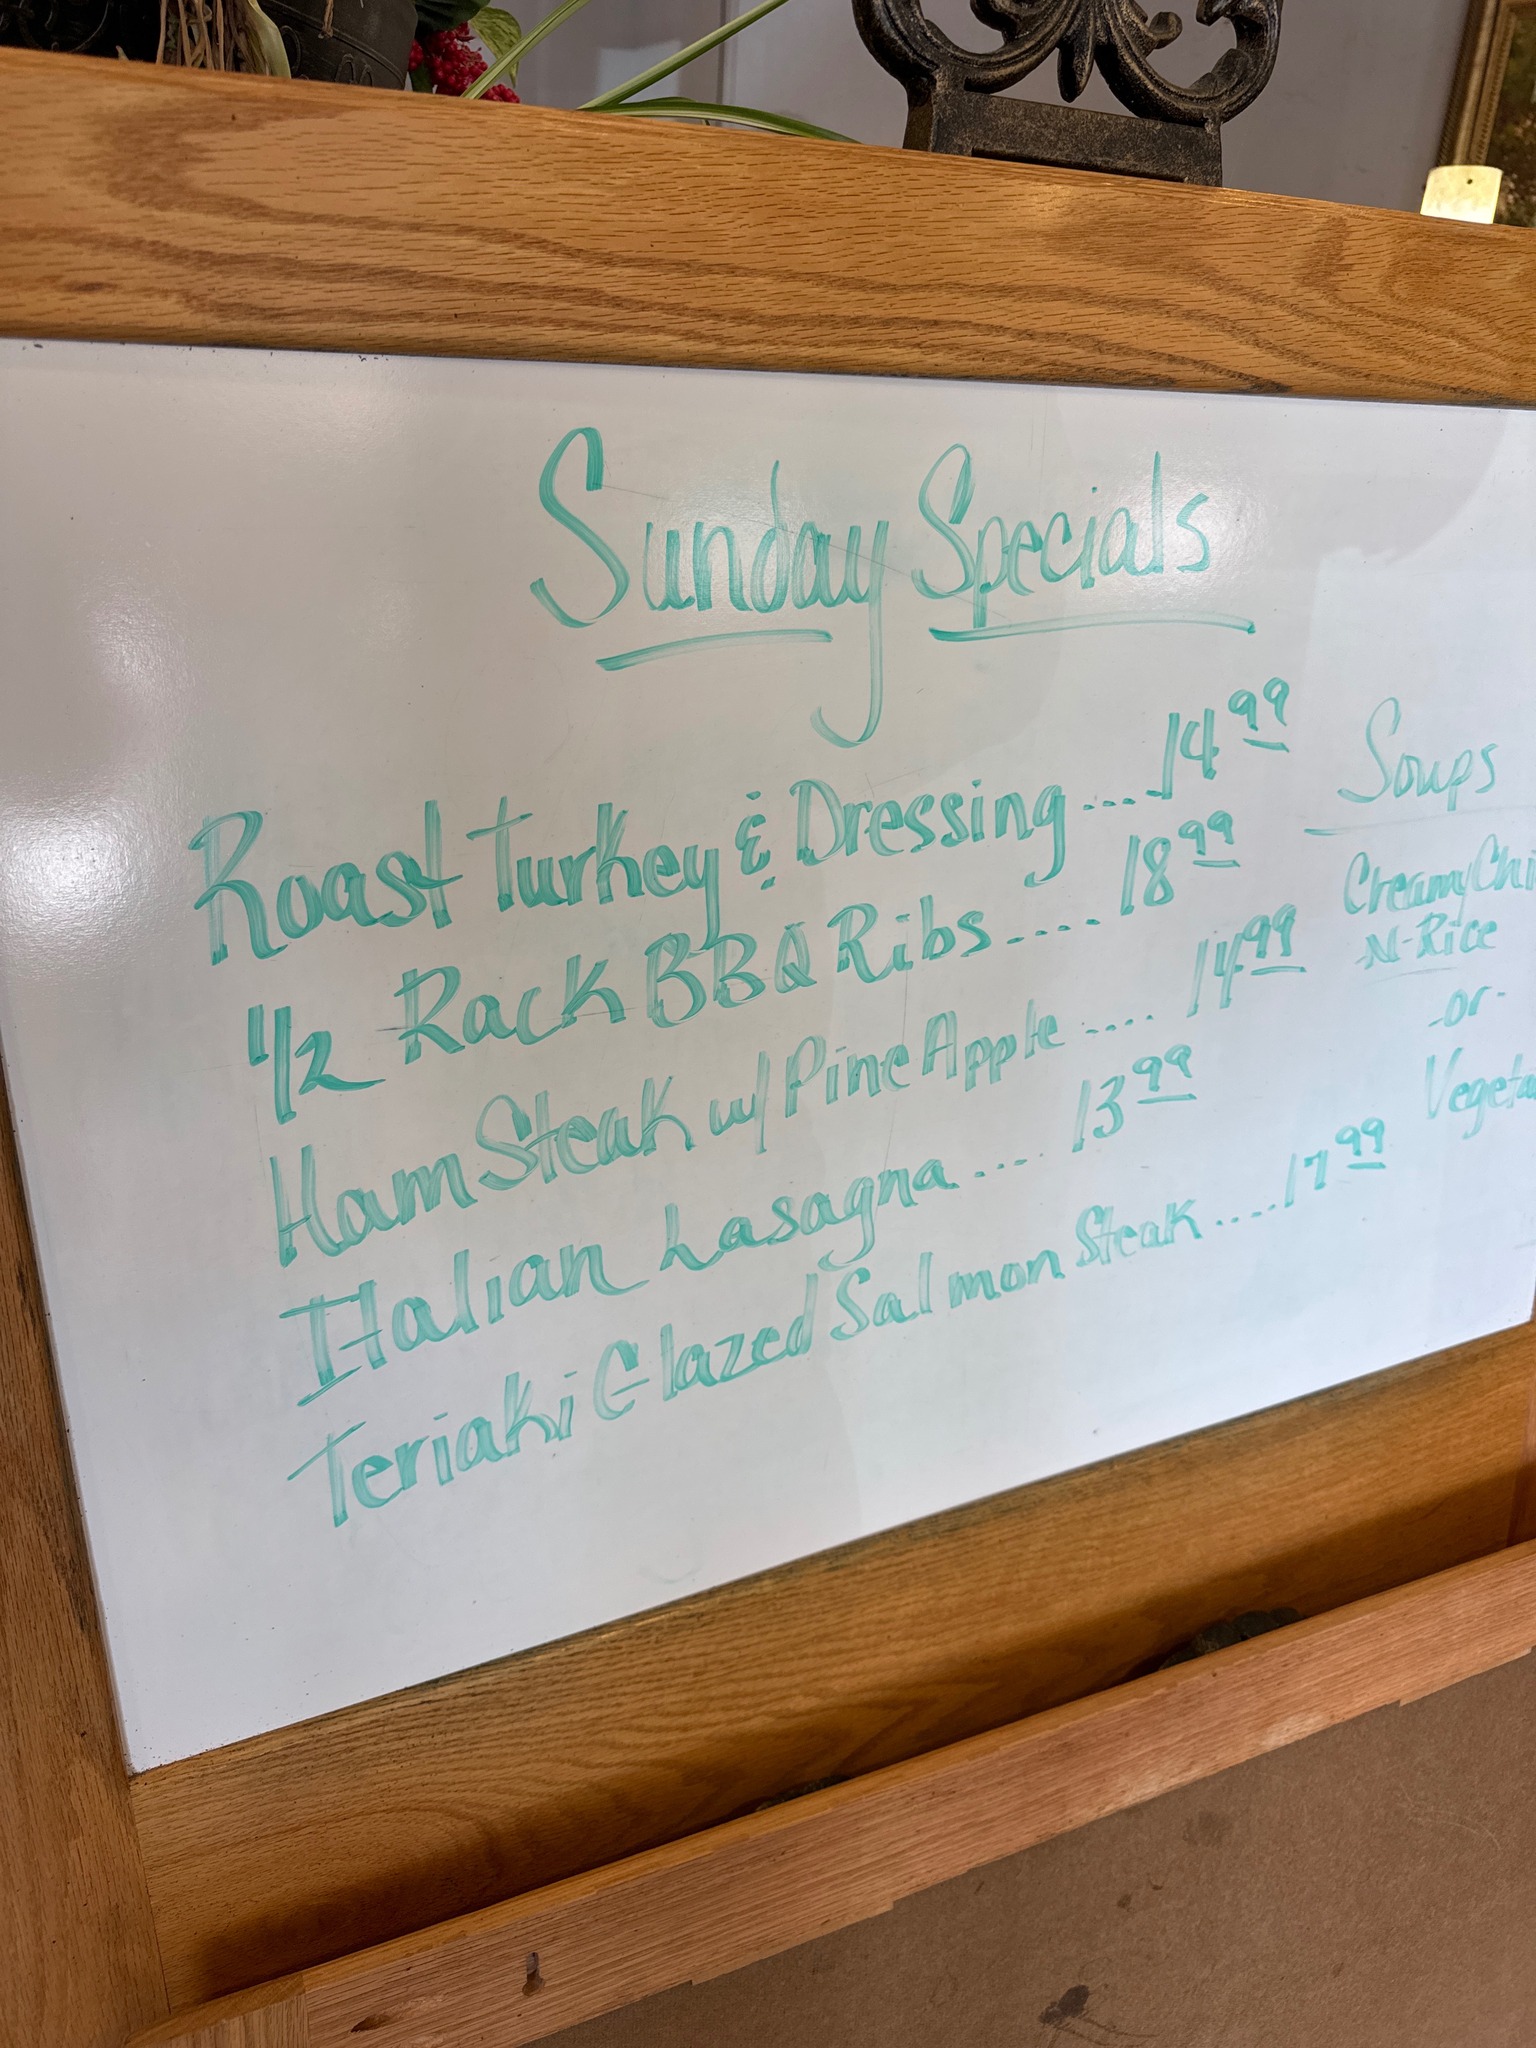 Sunday Specials
Roast Turkey & Dressing....14.99
1/2 Rack BBQ Ribs.....18.99
Ham Steak w/ Pine Apple.....14.99
Italian Lasagna.....13.99
Teriaki Glazed Salmon Steak.....17.99
Soups
Creamy Chi
N-Rice
-or-
Vegeta